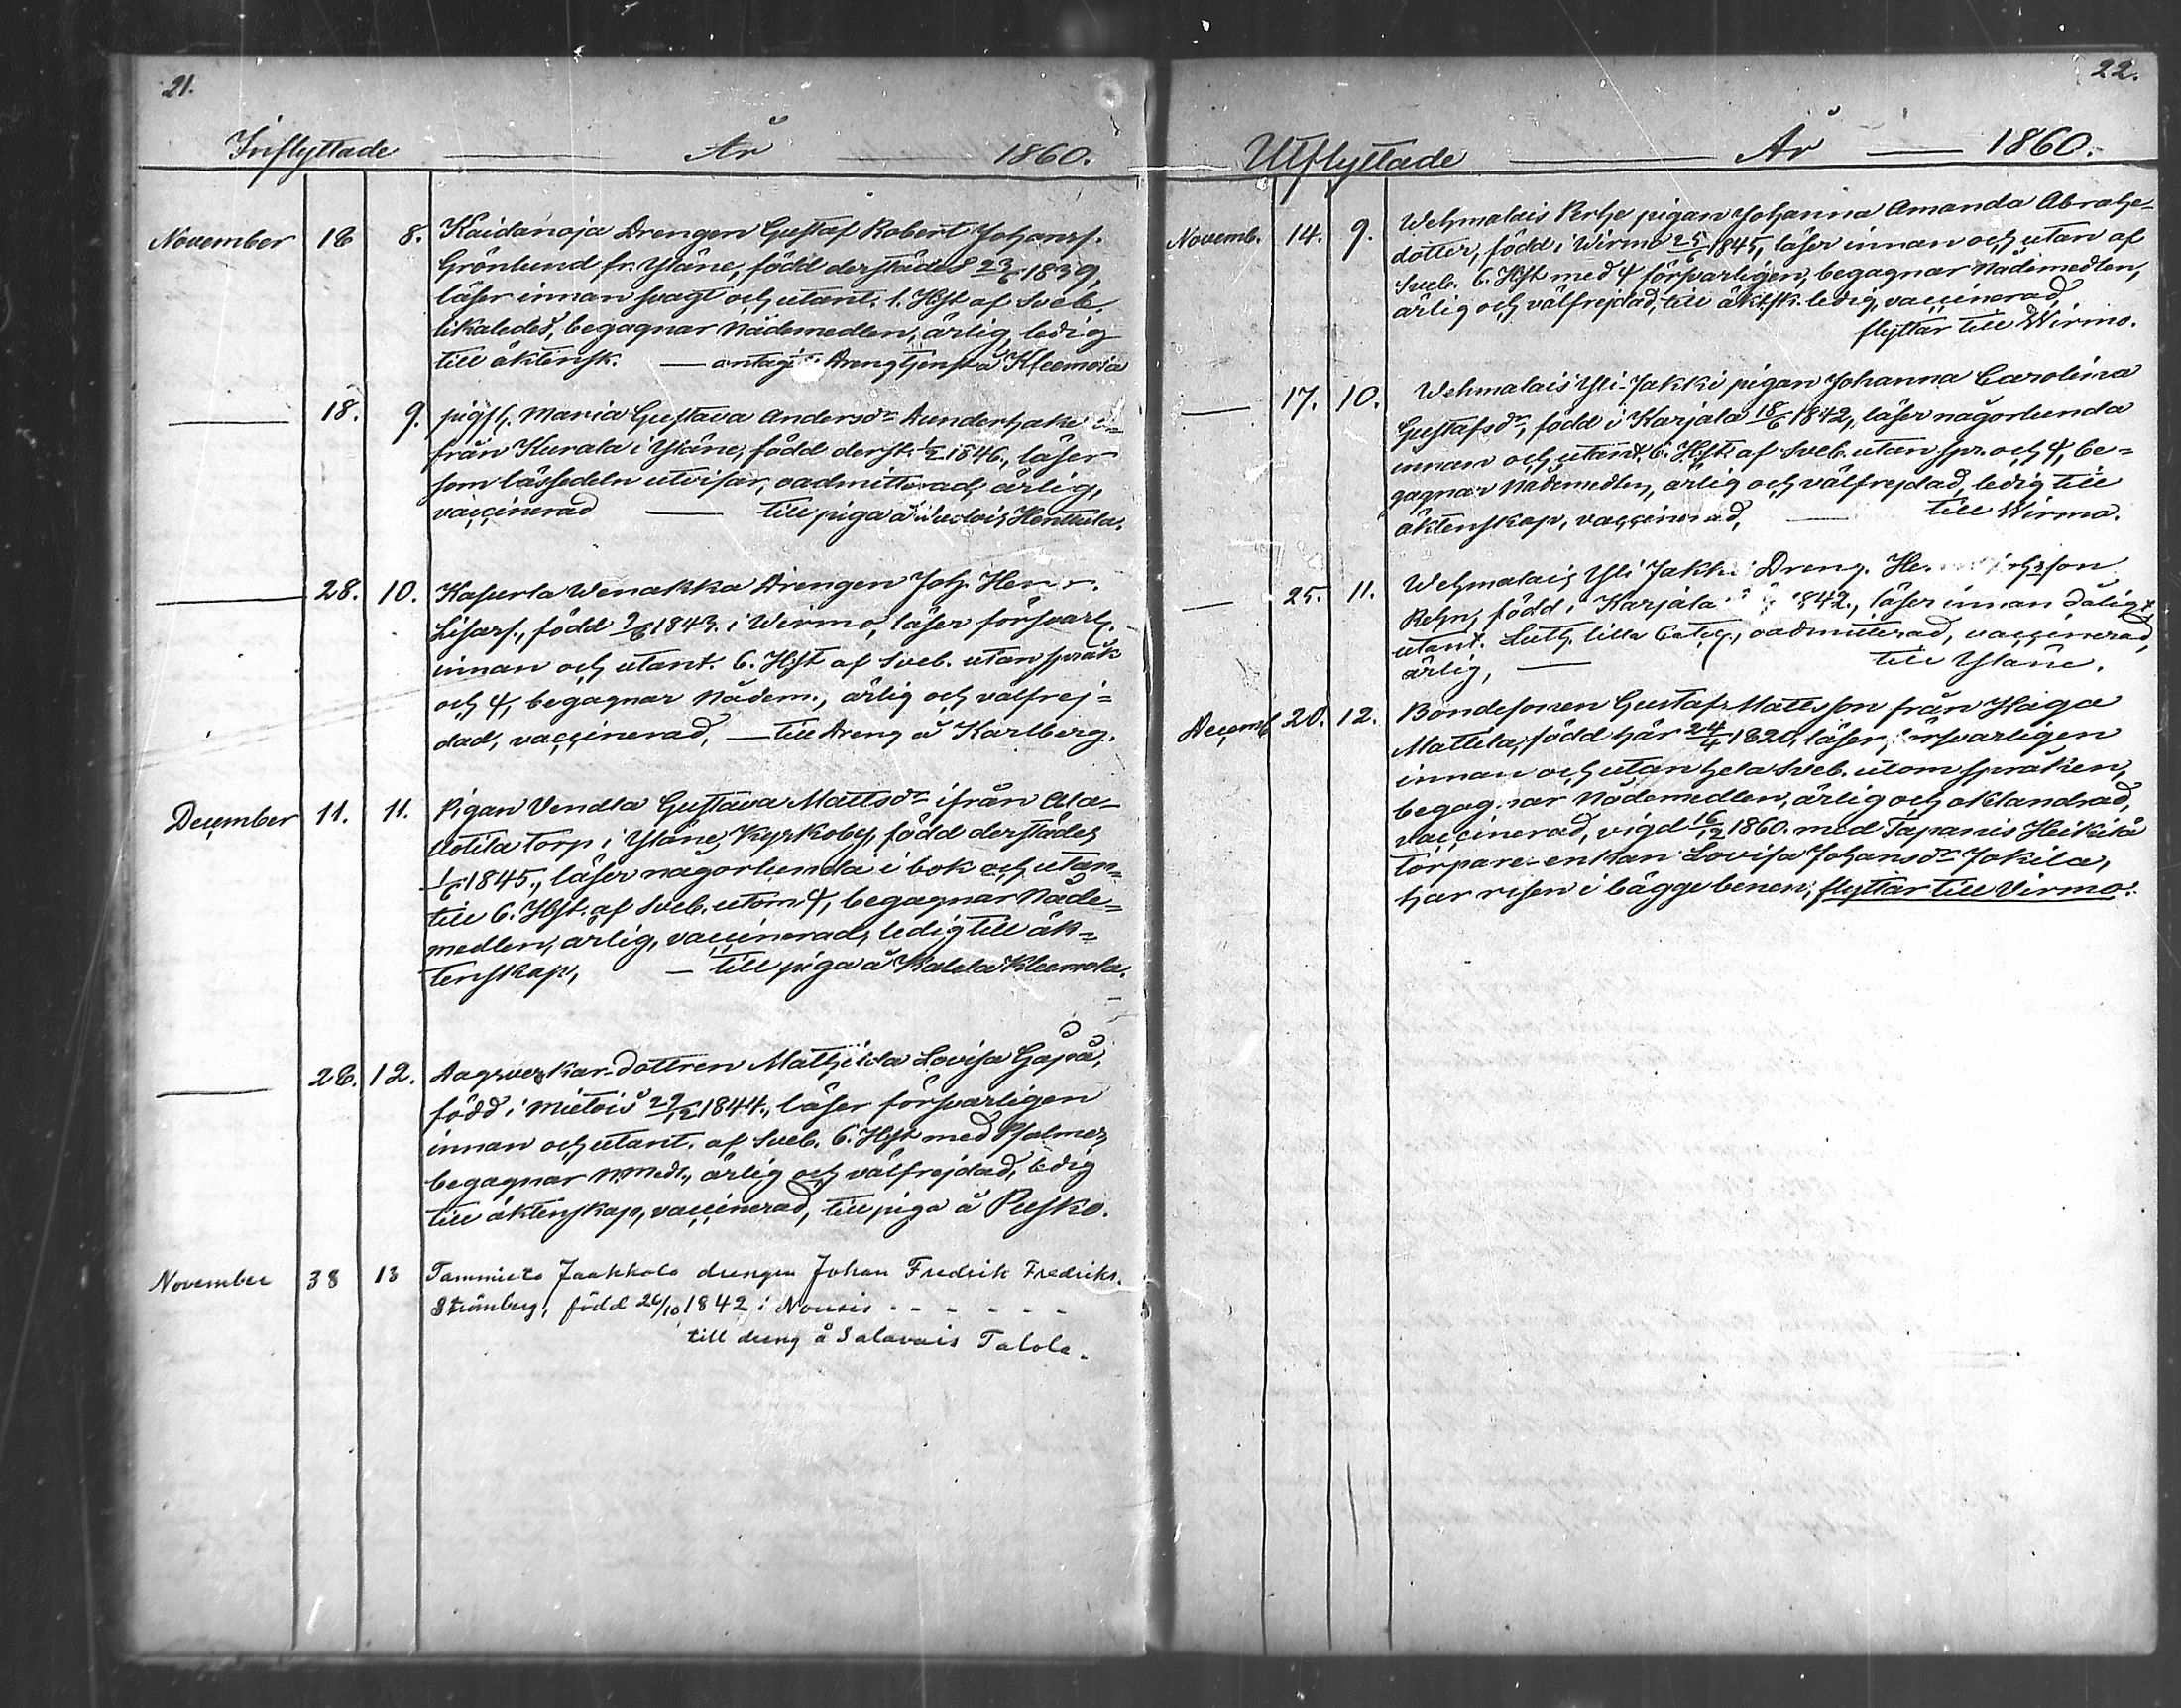 21.
Inflyttade År 1860.
November 16 8. Kaidanoja Drengen Gustaf Robert Johanss.
Grönlund fr. Yläne, född derstädes 23/6 1839,
läser innan svagt och utant. 1. Hst af Sveb.
likaledes, begagnar Nådemedlen, ärlig, ledig
till äktensk. — antagit Drengtjenst å Kleemola
— 18. 9. pigfl. Maria Gustava Andersdr Dunderhake i-
från Kurala i Yläne, född derst. 1/2 1846, läser
som läsesedeln utvisar, oadmitterad, ärlig,
vaccinerad — till piga å Henttula.
— 28. 10. Kaperla Wenakka Drengen Joh. Henr.
Lisass., född 9/6 1843. i Wirmo, läser försvarl.
innan och utant. 6. Hst af Sveb. utan språk
och 4, begagnar Nådem., ärlig och välfrej=
dad, vaccinerad, — till Dreng å Karlberg.
December 11. 11. Pigan Vendla Gustava Mattsdr ifrån Ala-
Uotila torp i Yläne Kyrkoby, född derstädes
1/6 1845., läser någorlunda i bok och utan=
till 6. Hst. af Sveb. utom 4, begagnar Nåde=
medlen, ärlig, vaccinerad, ledig till äk=
tenskap, — till piga å Kalela Kleemola.
— 26. 12. Dagsverkar-dottren Mathilda Lovisa Gåpå,
född i Mietois 29/12 1844., läser försvarligen
innan och utant. af Sveb. 6. Hst med Psalmer,
begagnar N.medl., ärlig och välfrejdad, ledig
till äktenskap, vaccinerad, till piga å Pusko.
November 38 13 Tammisto Jaakkola drengen Johan Fredrik Fredriks.
Strömberg, född 26/10 1842 i Nousis - - - - - -
till dreng å Salavais Talola.
22.
Utflyttade — År — 1860.
Novemb. 14. 9. Wehmalais Perhe pigan Johanna Amanda Abrahe-
dotter, född i Wirmo 25/6 1845, läser innan och utan af
Sveb. 6. Hst med 4 försvarligen, begagnar Nådemedlen,
ärlig och välfrejdad, till äktsk. ledig, vaccinerad,
flyttar till Wirmo.
— 17. 10. Wehmalais Yli-Jakki pigan Johanna Carolina
Gustafsdr, född i Karjala 18/6 1842, läser någorlunda
innan och utant. 6. Hst. af Sveb. utan spr. och 4, be=
gagnar Nådemedlen, ärlig och välfrejdad, ledig till
äktenskap, vaccinerad, — till Wirmo.
— 25. 11. Wehmalais Yli Jakki Dreng.
Rehn, född i Karjala 1842., läser innan dåligt,
utant. Luth. lilla Categ., oadmitterad, vaccinerad,
ärlig, — till Yläne.
Decemb. 20. 12. Bondesonen Gustaf Mattsson från Haga
Mattila, född här 24/4 1820, läser försvarligen
innan och utan hela Sveb. utom språken,
begagnar Nådemedlen, ärlig och oklandrad,
vaccinerad, vigd 16/12 1860. med Tapanis Heikilä
torpare-enkan Lovisa Johansdr Jokila,
har risen i bägge benen, flyttar till Virmo.